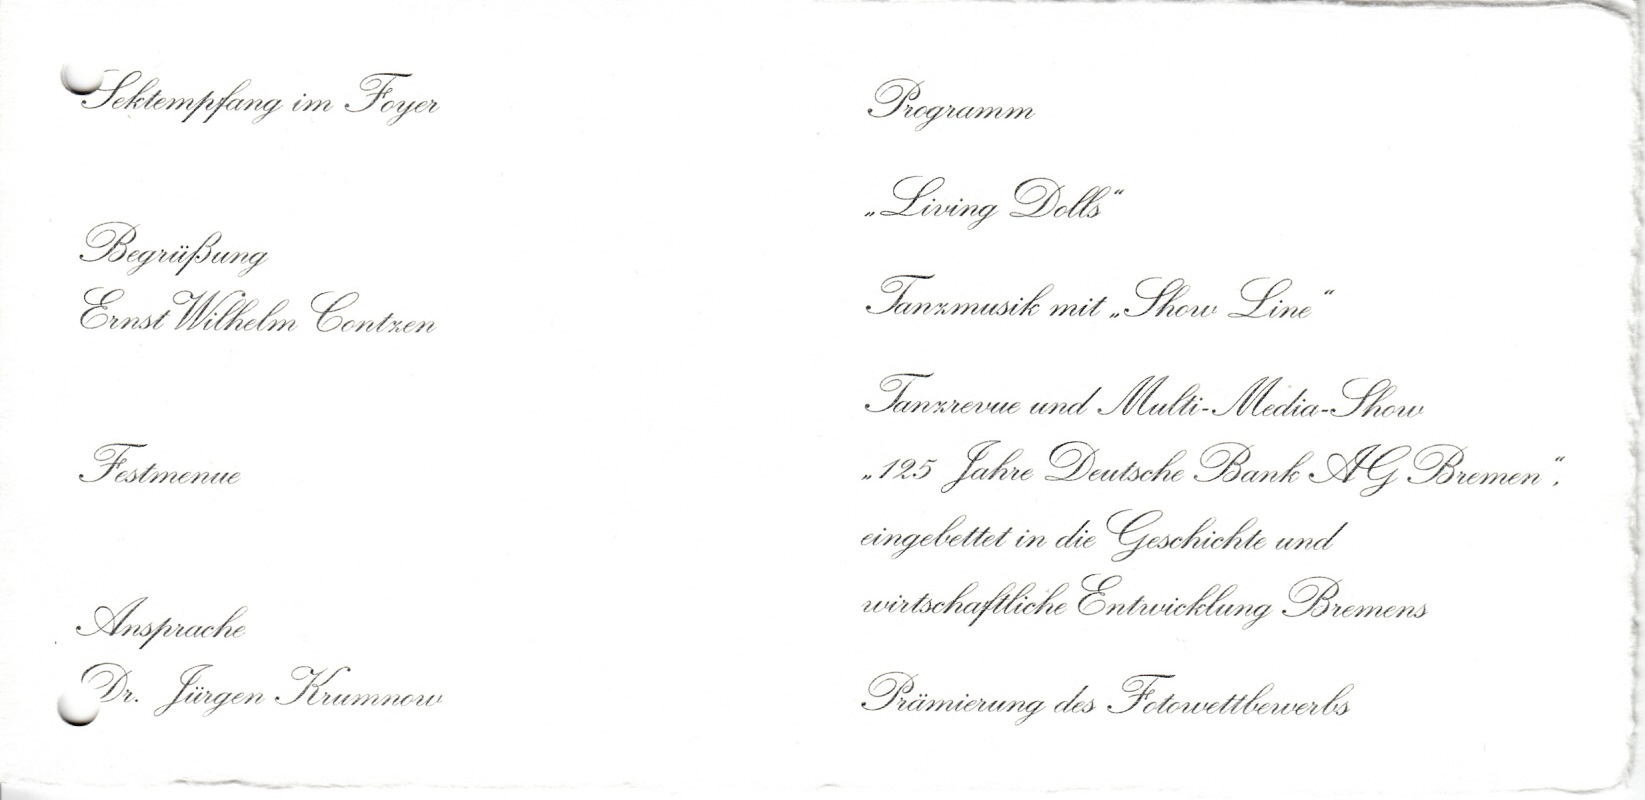 Sektempfang im Foyer
Begrüßung
Ernst Wilhelm Contzen
Festmenue
Ansprache
Dr. Jürgen Krumnow
Programm
„Living Dolls“
Tanzmusik mit „Show Line“
Tanzrevue und Multi-Media-Show
„125 Jahre Deutsche Bank AG Bremen“,
eingebettet in die Geschichte und
wirtschaftliche Entwicklung Bremens
Prämierung des Fotowettbewerbs